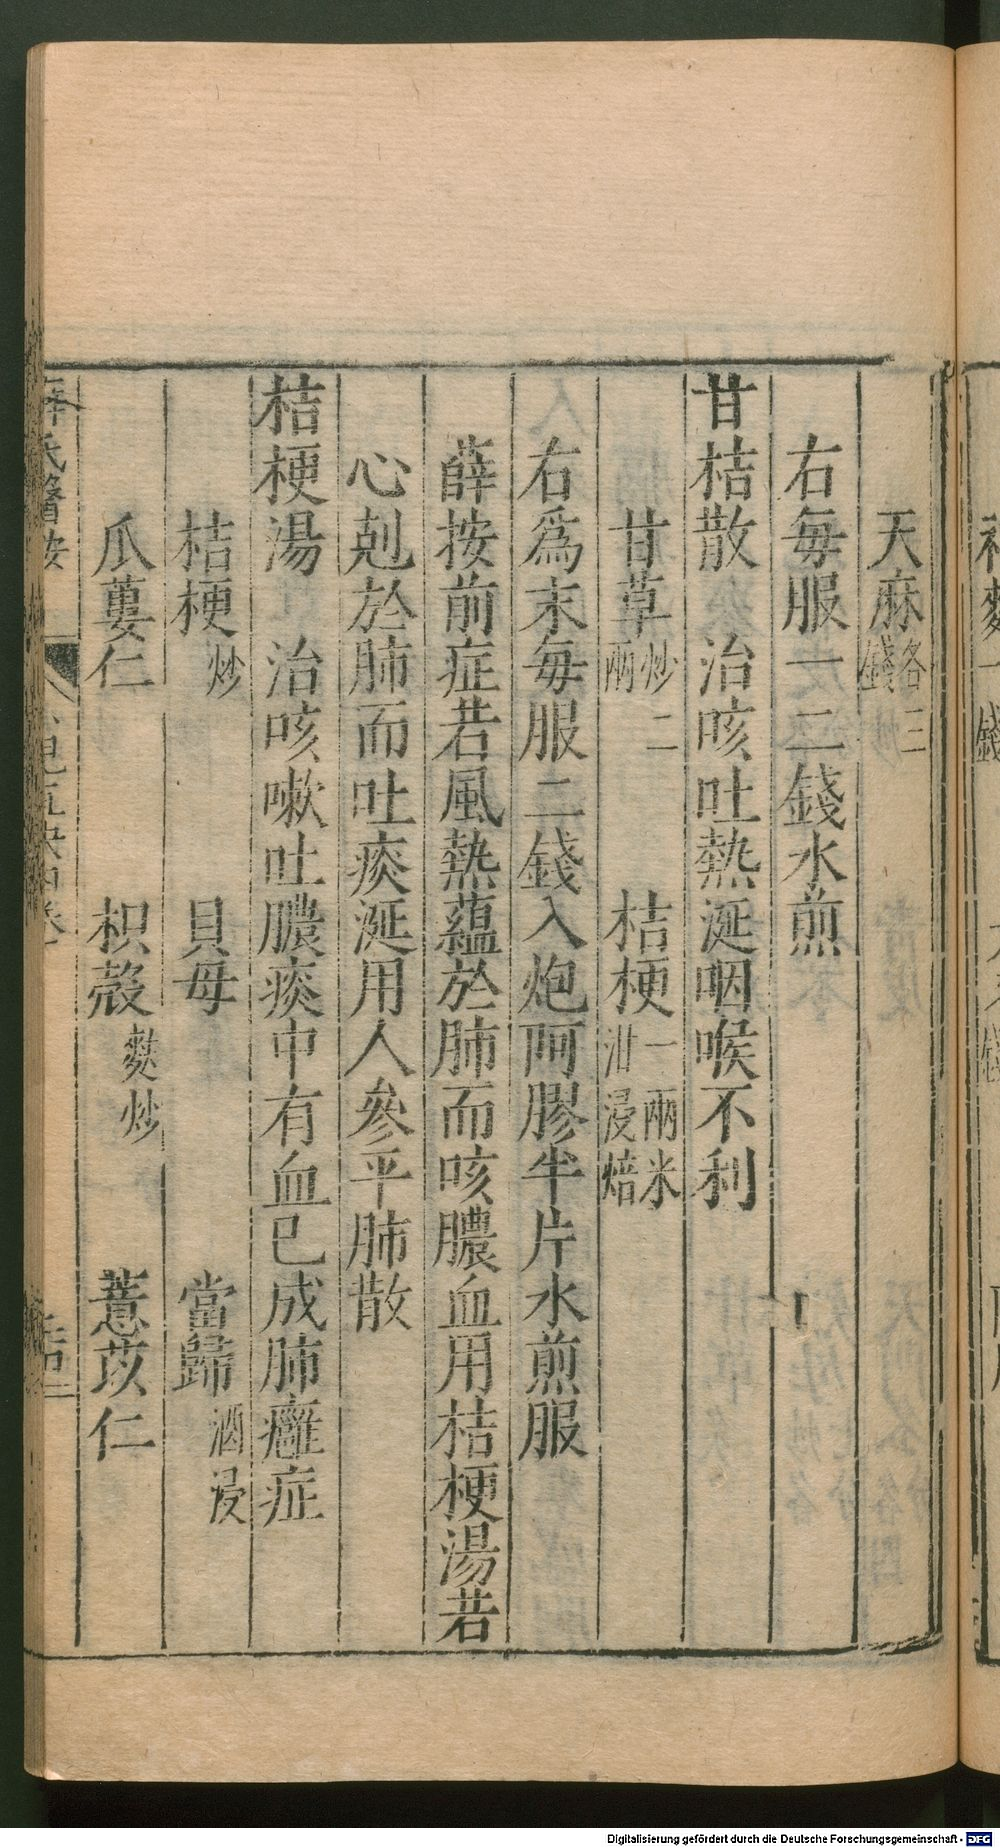 天麻各二錢
右每服一二錢水煎
甘桔散　治咳吐熱涎咽喉不利
甘草炒二兩　桔梗一兩米泔浸焙
右爲末每服二錢入炮阿膠半片水煎服
薛按前症若風熱蘊於肺而咳膿血用桔梗湯若
心剋於肺而吐痰涎用人參平肺散
桔梗湯　治咳嗽吐膿痰中有血已成肺癰症
桔梗炒　貝母　當歸酒浸
瓜蔞仁　枳殼麩炒　薏苡仁
薛氏醫按
Digitalisierung gefördert durch die Deutsche Forschungsgemeinschaft - DFG